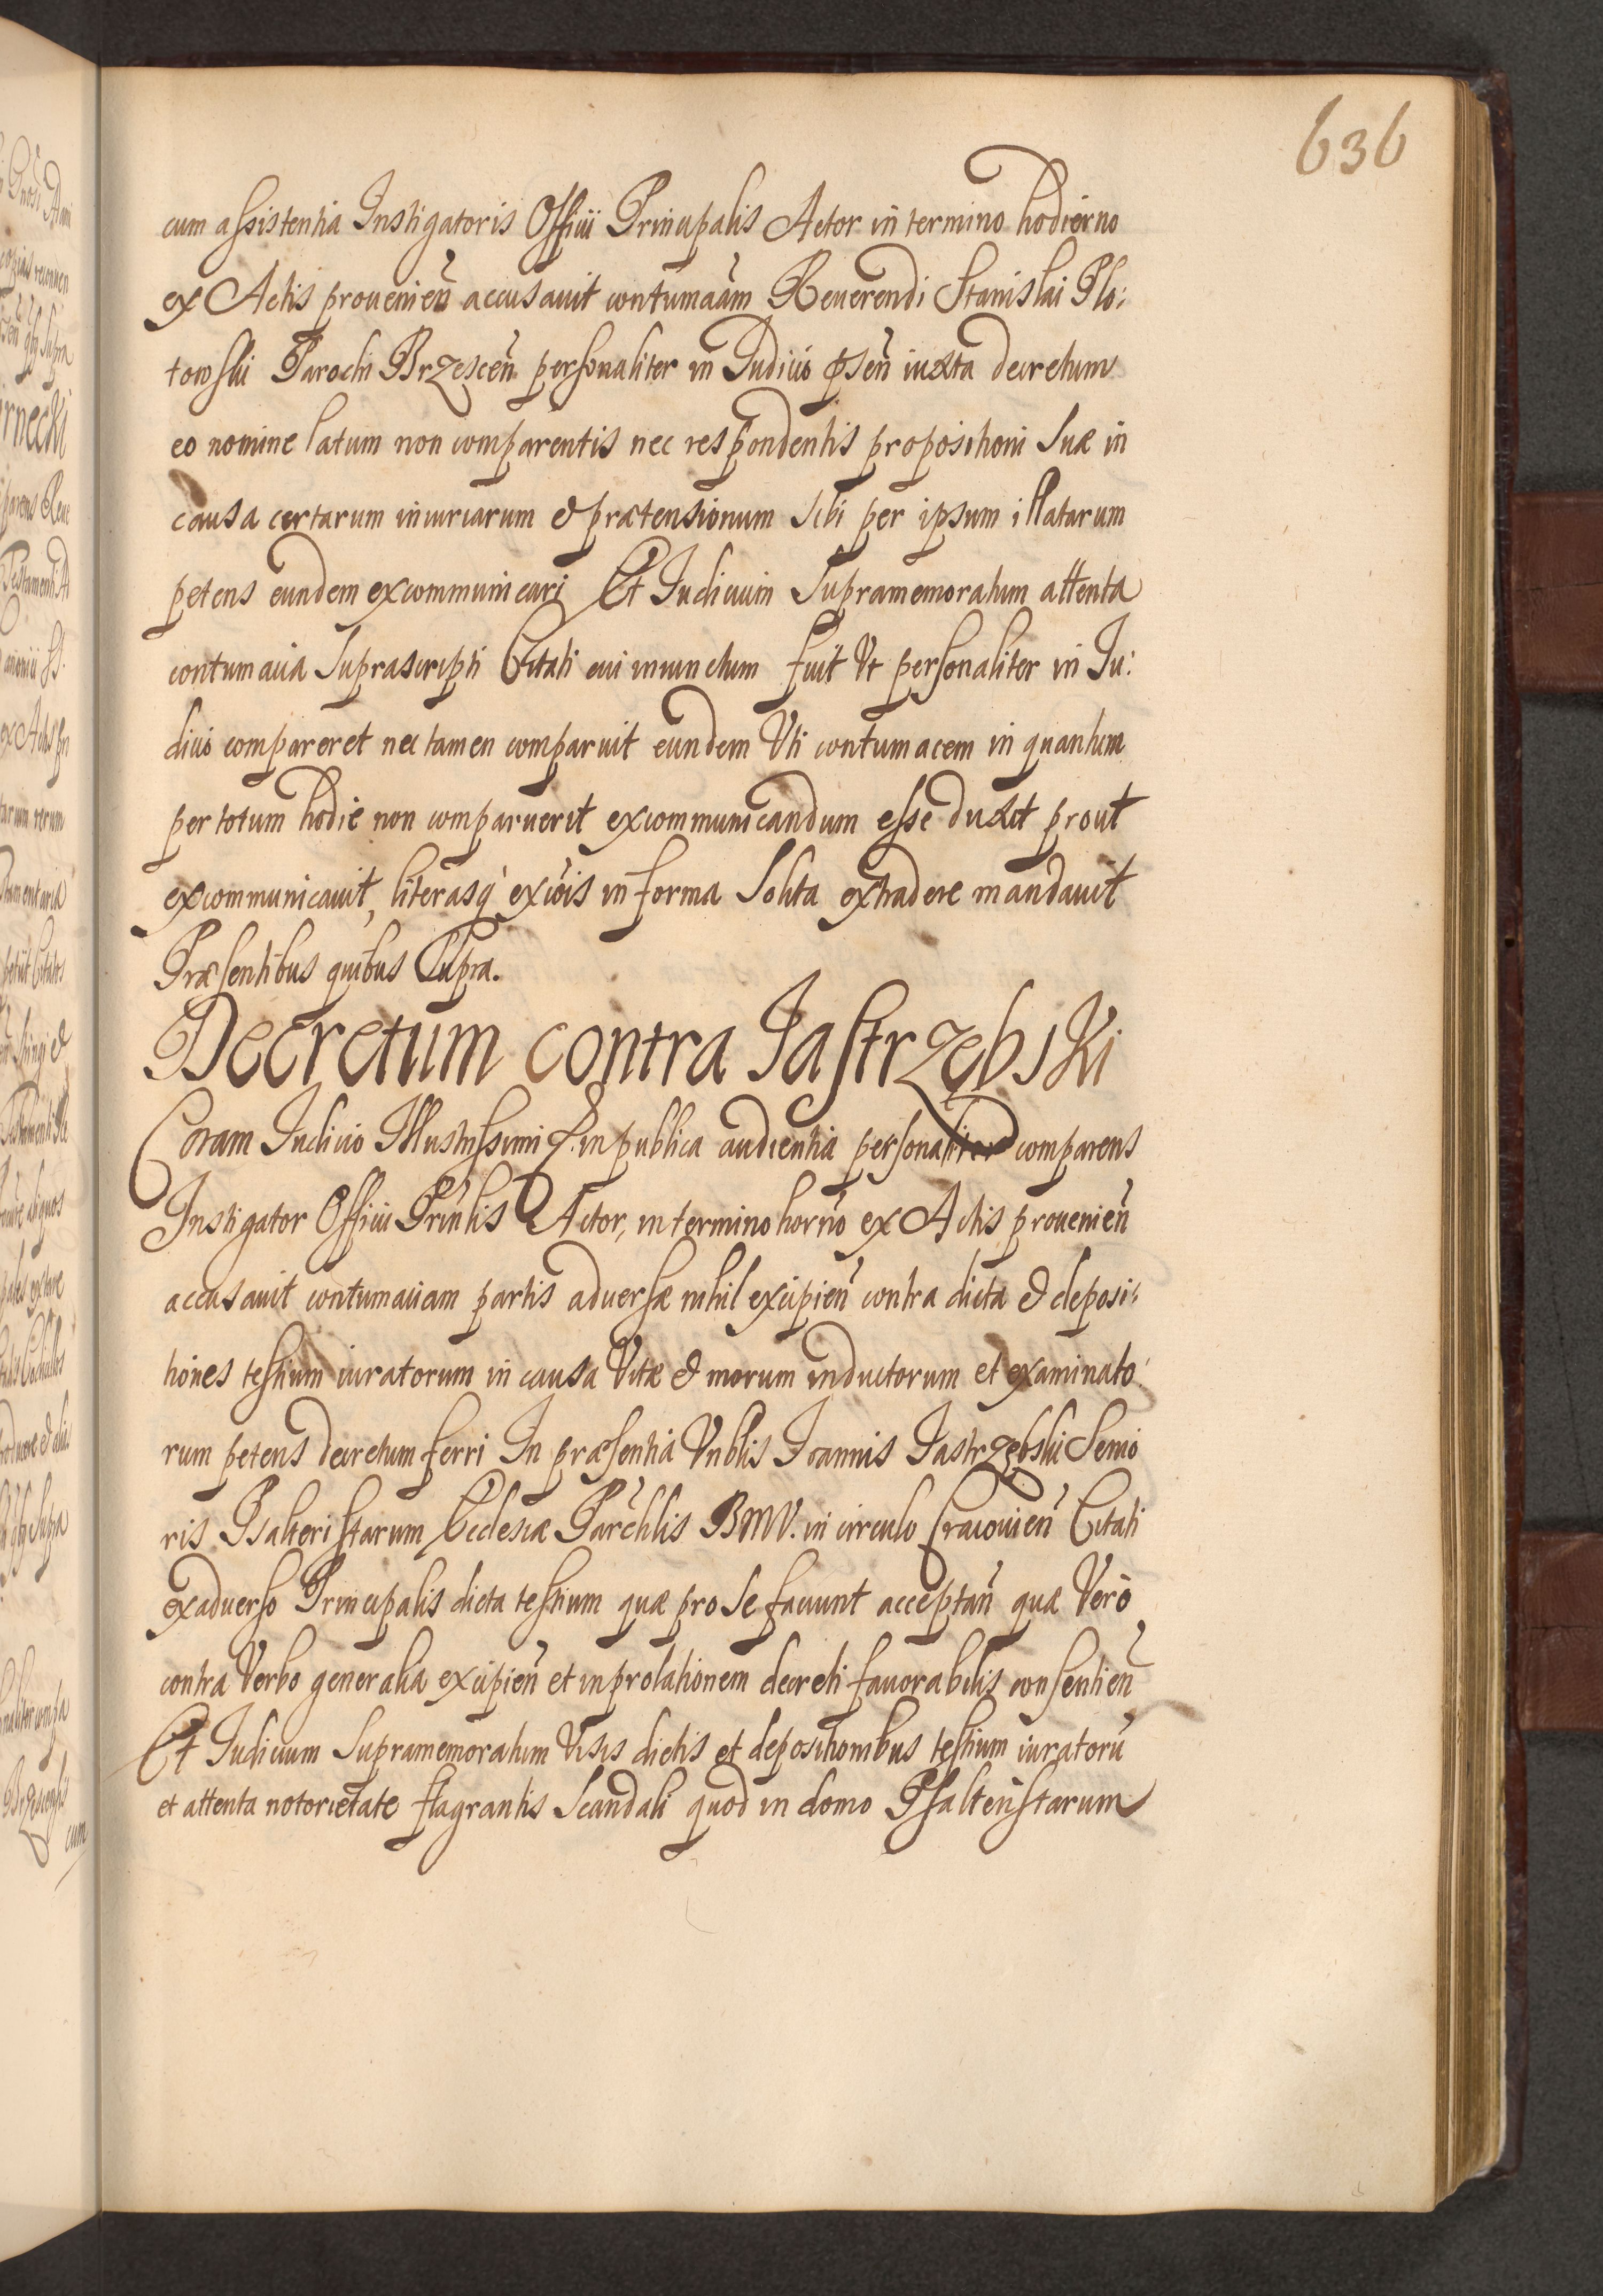 636
cum assistentia Instigatoris Officii Principalis Actor in termino hodierno
ex Actis prouenień accusauit contumaciam Reuerendi Stanislai Plo:
towski Parochi Brzesceń personaliter in Judicio pseń iuxta decretum
eo nomine latum non comparentis nec respondentis propositioni Suæ in
causa certarum iniuriarum & prætensionum Sibi per ipsum illatarum
petens eundem excommunicari Et Iudicium Supramemoratum attenta
contumacia Suprascripti Citati cui iniunctum fuit Vt personaliter in Iu:
dicio compareret nec tamen comparuit eundem Vti contumacem in quantum
per totum hodie non comparuerit excommunicandum esse duxit prout
excommunicauit, literasq́ excōis in forma Solita extradere mandauit
Præsentibus quibus Supra.
Decretum contra Jastrzębski
Coram Iudicio Illustrissimi &. in publica audientia personaliter comparens
Instigator Officii Prinlis Actor, in termino horno ex Actis prouenień
accusauit contumaciam partis aduersæ nihil excipień contra dicta & deposi:
tiones testium iuratorum in causa Vitæ & morum inductorum et examinato:
rum petens decretum ferri In præsentia Vnblis Ioannis Jastrzębski Senio
ris Psalteristarum Ecclesiæ Parchlis BMV. in circulo Cracouień Citati
ex aduerso Principalis dicta testium quæ pro se faciunt acceptań quæ Vero
contra Verbo generalia excipień et in prolationem decreti fauorabilis consentień
Et Iudicium Supramemoratum Visis dictis et depositionibus testium iuratorū
et attenta notorietate flagrantis Scandali quod in domo Psalteristarum